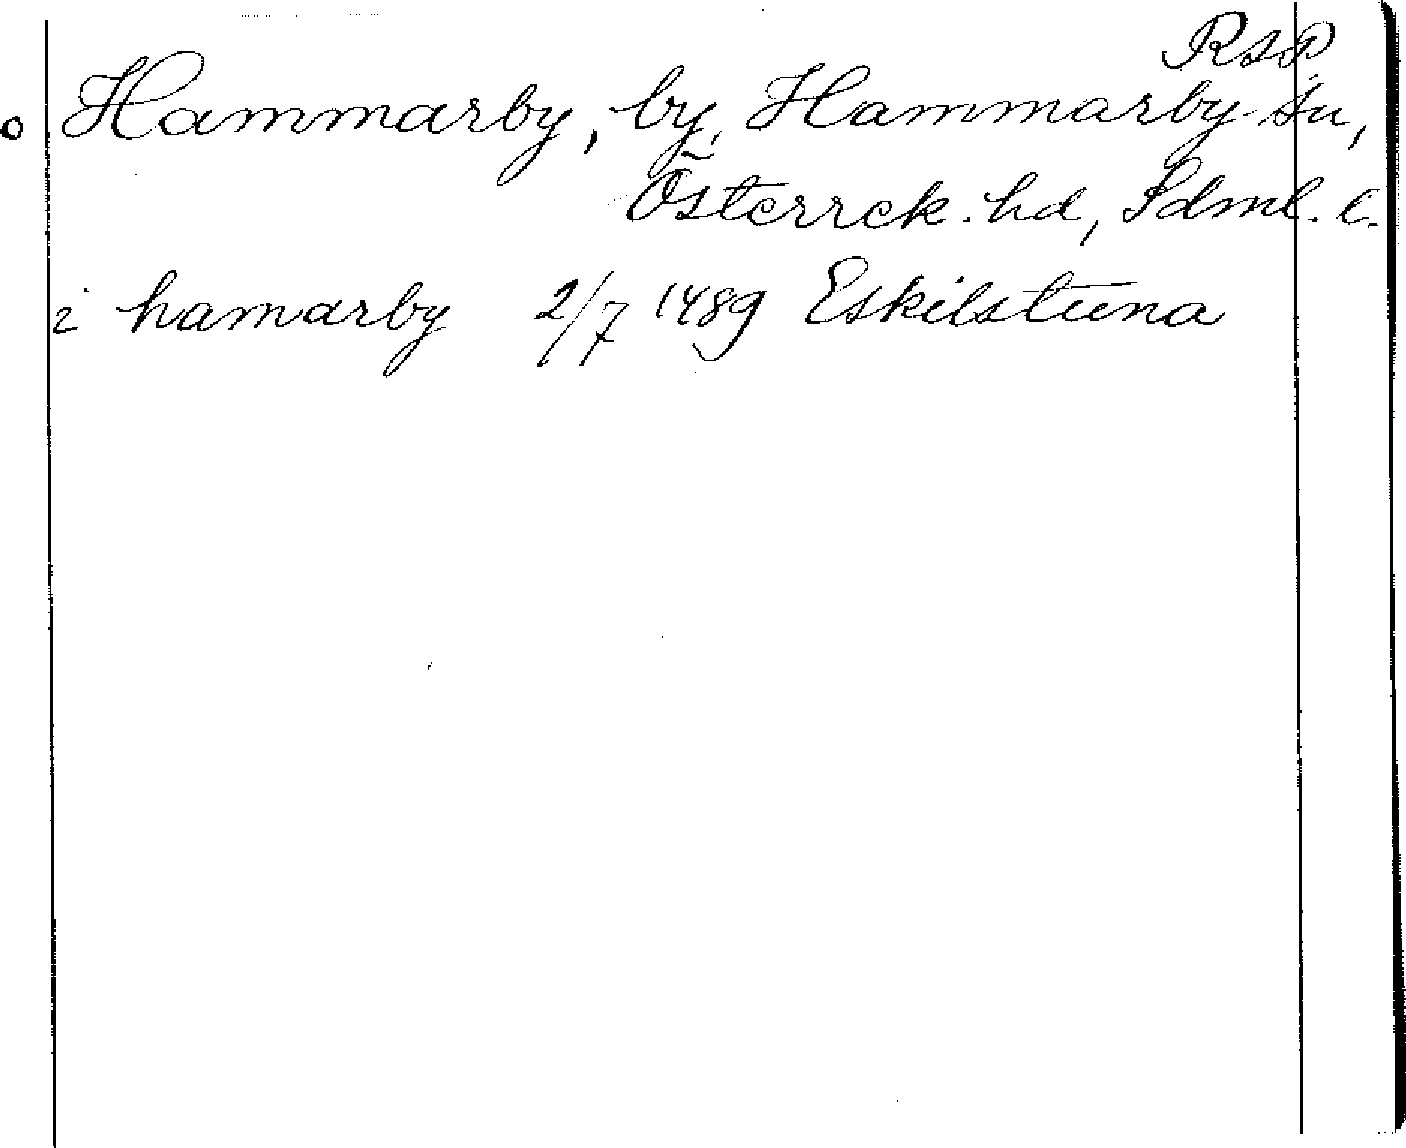 RAP
o Hammarby, by, Hammarby sn,
Österrek. hd, Sdml. l.
i hamarby 2/7 1489 Eskilstuna